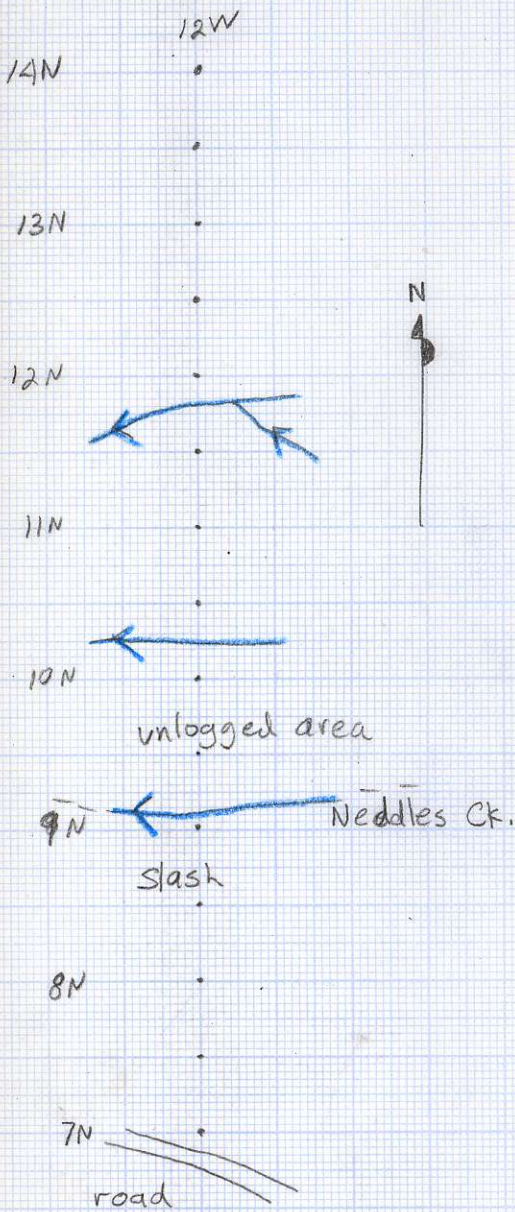 12W
14N
13N
N
12N
11N
10N
unlogged area
9N
Neddles Ck.
slash
8N
7N
road